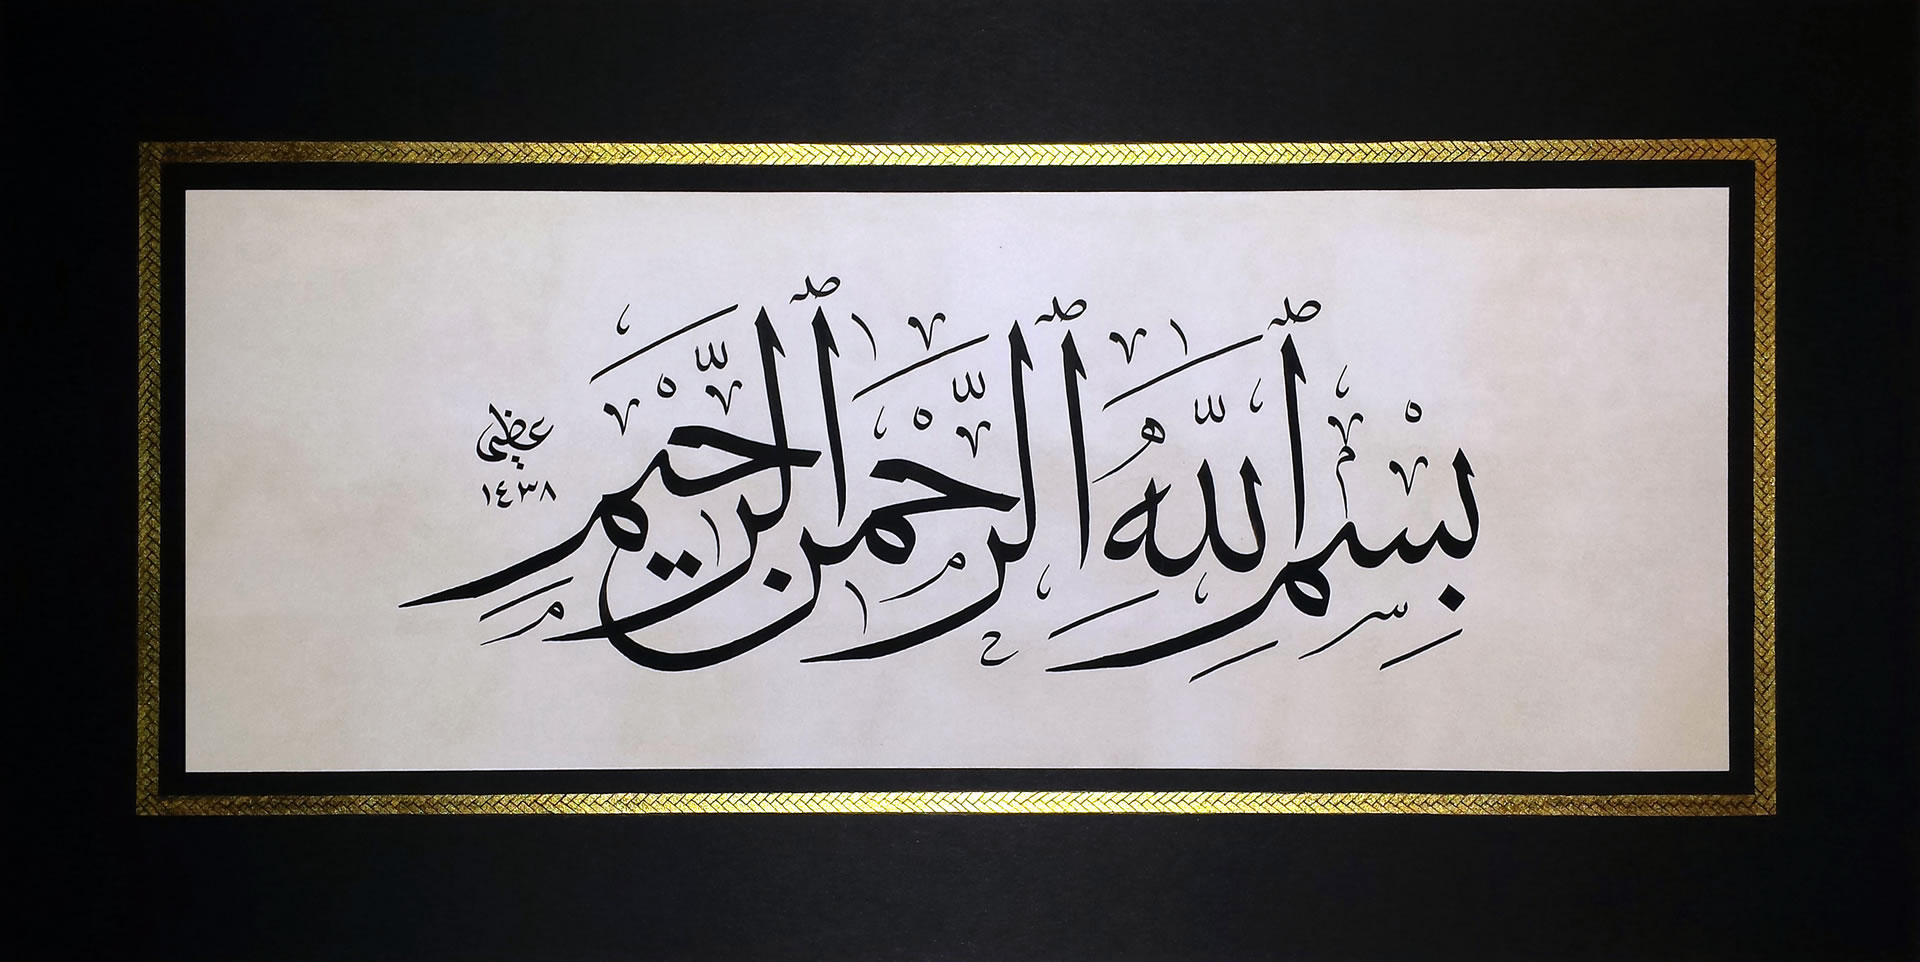 بِسْمِ ٱللَّهِ ٱلرَّحْمٰنِ ٱلرَّحِيمِ
عظيمي
١٤٣٨